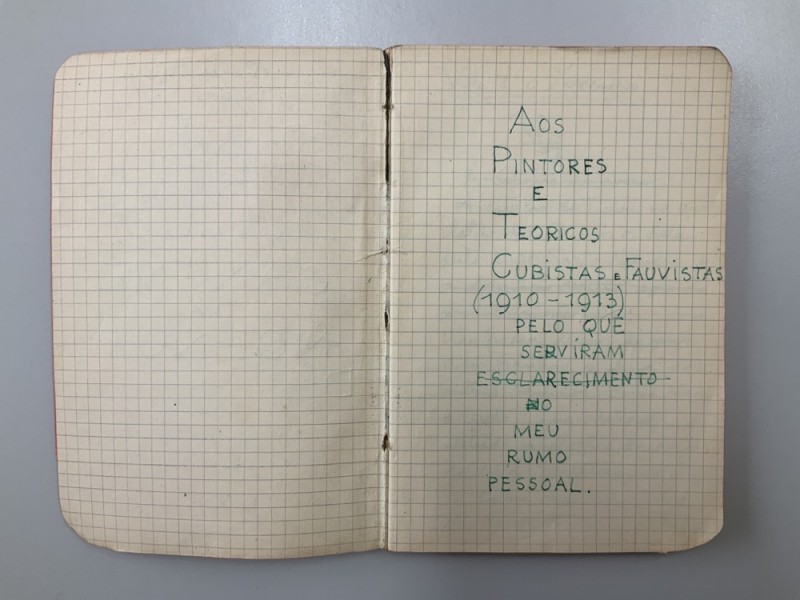 AOS
PINTORES
E
TEORICOS
CUBISTAS E FAUVISTAS
(1910-1913)
PELO QUÉ
SERVIRAM
ESCLARECIMENTO
NO
MEU
RUMO
PESSOAL.